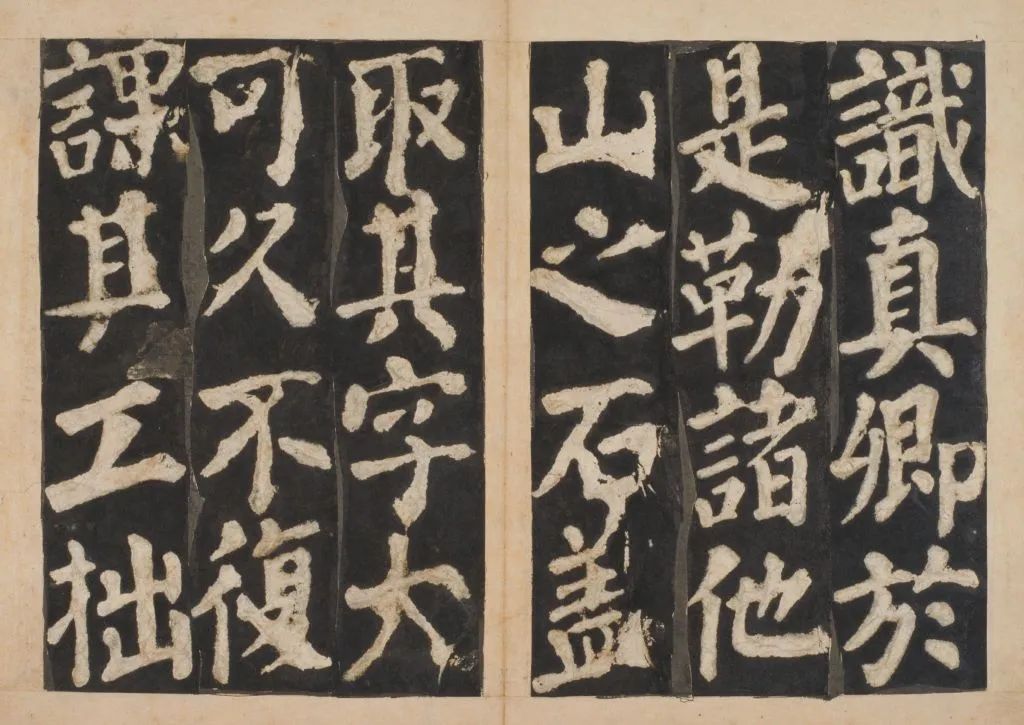 識真卿於
是勒諸他
山之石盖
取其字大
可久不復
課其工拙